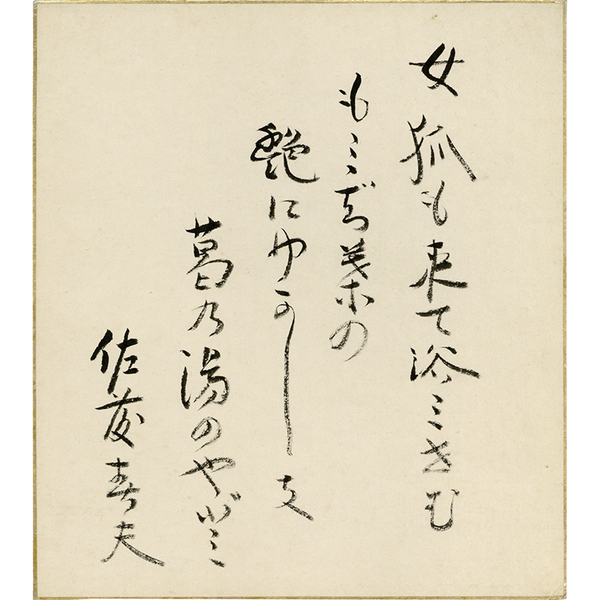 女狐も来て浴ミせむ
もミぢ葉の
艶にゆかしき
葛乃湯のやどミ
佐藤春夫